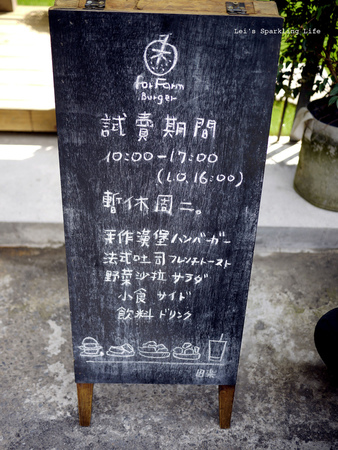 Lei's Sparkling Life
for Farm
Burger
試賣期間
10:00-17:00
(L.O. 16:00)
暫休周二。
手作漢堡 ハンバーガー
法式吐司 フレンチトースト
野菜沙拉 サラダ
小食 サイド
飲料 ドリンク